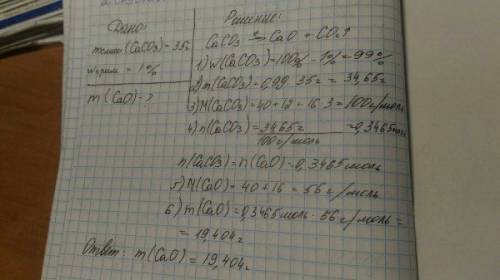 Дано:
m техн. (CaCO3) - 35г
w прим. = 1%
m(CaO) = ?
Решение:
CaCO3 ⇄ CaO + CO2↑
1) w(CaCO3) = 100% - 1% = 99%
2) m(CaCO3) = 0,99 · 35г = 34,65г
3) M(CaCO3) = 40 + 12 + 16·3 = 100г/моль
4) n(CaCO3) = 34,65г / 100г/моль = 0,3465моль
n(CaCO3) = n(CaO) = 0,3465моль
5) M(CaO) = 40 + 16 = 56г/моль
6) m(CaO) = 0,3465моль · 56г/моль =
= 19,404г
Ответ: m(CaO) = 19,404г